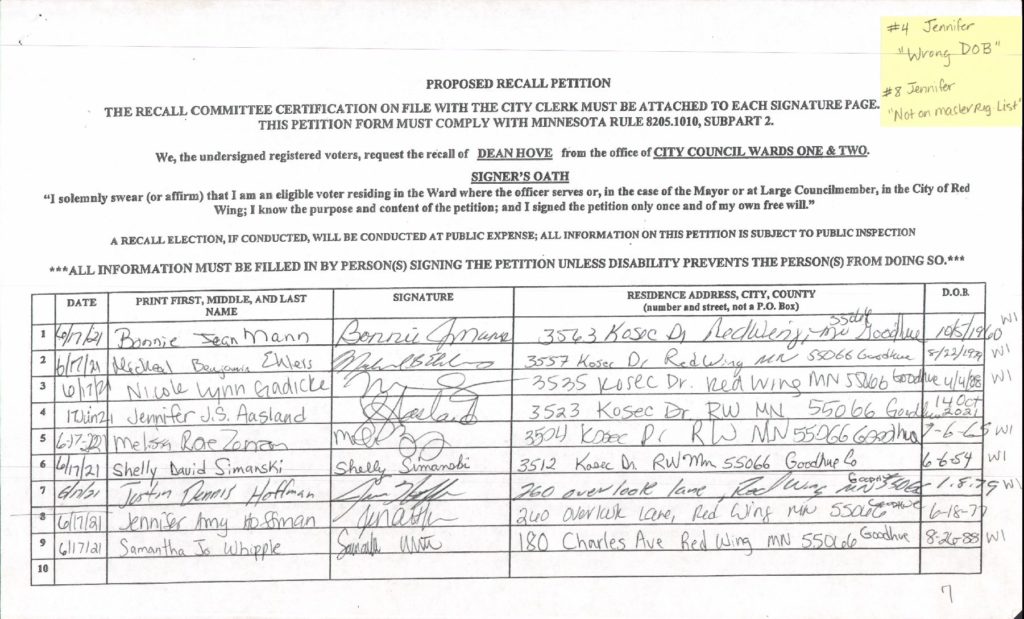 #4 Jennifer
"Wrong DOB"
#8 Jennifer
"Not on master Reg List"
PROPOSED RECALL PETITION
THE RECALL COMMITTEE CERTIFICATION ON FILE WITH THE CITY CLERK MUST BE ATTACHED TO EACH SIGNATURE PAGE.
THIS PETITION FORM MUST COMPLY WITH MINNESOTA RULE 8205.1010, SUBPART 2.
We, the undersigned registered voters, request the recall of DEAN HOVE from the office of CITY COUNCIL WARDS ONE & TWO.
SIGNER'S OATH
"I solemnly swear (or affirm) that I am an eligible voter residing in the Ward where the officer serves or, in the case of the Mayor or at Large Councilmember, in the City of Red
Wing; I know the purpose and content of the petition; and I signed the petition only once and of my own free will."
A RECALL ELECTION, IF CONDUCTED, WILL BE CONDUCTED AT PUBLIC EXPENSE; ALL INFORMATION ON THIS PETITION IS SUBJECT TO PUBLIC INSPECTION
***ALL INFORMATION MUST BE FILLED IN BY PERSON(S) SIGNING THE PETITION UNLESS DISABILITY PREVENTS THE PERSON(S) FROM DOING SO.***
DATE PRINT FIRST, MIDDLE, AND LAST NAME SIGNATURE RESIDENCE ADDRESS, CITY, COUNTY (number and street, not a P.O. Box) D.O.B.
1 6/17/21 Bonnie Jean Mann Bonnie J Mann 3563 Kosec Dr Red Wing, mn 55066 Goodhue 10/5/1960 W1
2 6/17/21 Micheal Benjamin Ehlers 3557 Kosec Dr, Red Wing MN 55066 Goodhue 8/22/1974 W1
3 6/17/21 Nicole Lynn Gadicke 3535 Kosec Dr. Red Wing MN 55066 Goodhue 4/4/88 W1
4 17Jun21 Jennifer J.S. Aasland JSAasland 3523 Kosec Dr, RW MN 55066 Goodhue 14 Oct 2021
5 6-17-2021 Melissa Rae 3504 Kosec Dr RW MN 55066 Goodhue 7-6-65 W1
6 6/17/21 Shelly David Simanski Shelly Simanski 3512 Kosec Dr. RW Mn 55066 Goodhue Co 6-6-54 W1
7 6/17/21 Justin Dennis Hoffman 260 overlook lane, Red Wing MN 55066 Goodhue 1.8.79 W1
8 6/17/21 Jennifer Amy Hoffman 260 overlook Lane, Red Wing MN 55066 Goodhue 6-18-77
9 6/17/21 Samantha Jo Whipple 180 Charles Ave Red Wing MN 55066 Goodhue 8-26-88 W1
10
7